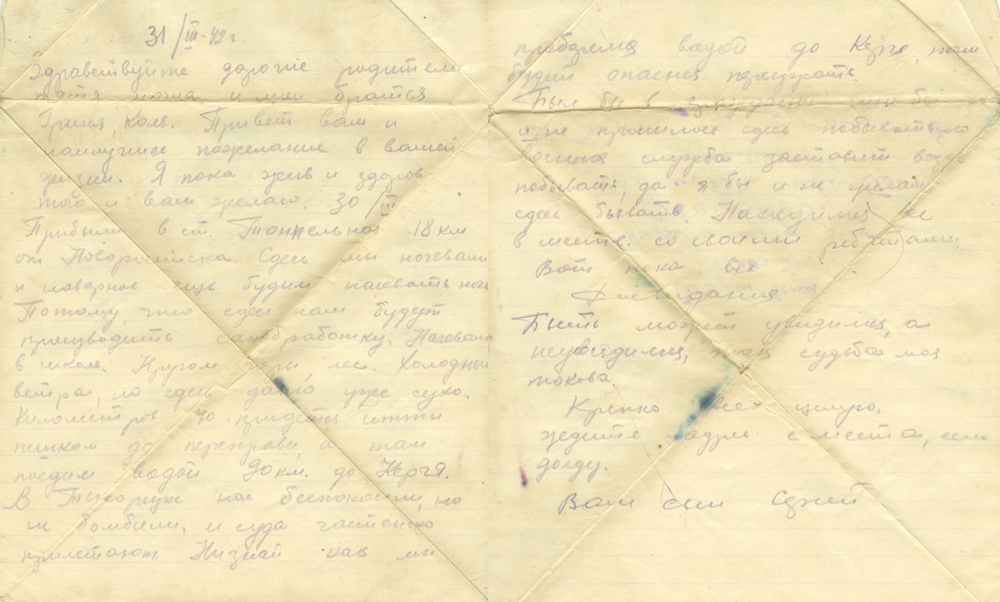 31/III-42 г.
Здравствуйте дорогие родители
тятя мама и мои братья
Граня, Коля. Привет вам и
наилучшие пожелание в вашей
жизни. Я пока жив и здоров
того и вам желаю. 30/III
Прибыли в ст. Тоннельная 18 км
от Новоросийска. Сдесь мы ночевали
и наверное ещё будим начевать ночь
Потому, что сдесь нам будут
производить санобработку. Начевали
в школе. Кругом горы, лес. Холодные
ветра, но сдесь давно уже сухо.
Километров 40 придется итти
пешком до переправы, а там
поедим водой 90 км. до Керчя.
В Тихорецке нас беспокоили, но
не бомбили, и суда частенько
прилетают. Низнай как мы
проберемся водой до Керчe, там
будит опасная переправа.
Был бы в гражданке
и не пришлось сдесь побывать, но
Военная служба заставит везде
побывать, да я бы и не желал
сдесь бывать. Находимся все
в месте, со своими ребятами.
Вот пока все
Досвидания
Быть может увидимся, а
неувидимся, так судьба моя
такова.
Крепко всех целую.
ждите адрес с места, если
доеду.
Ваш сын Сергей